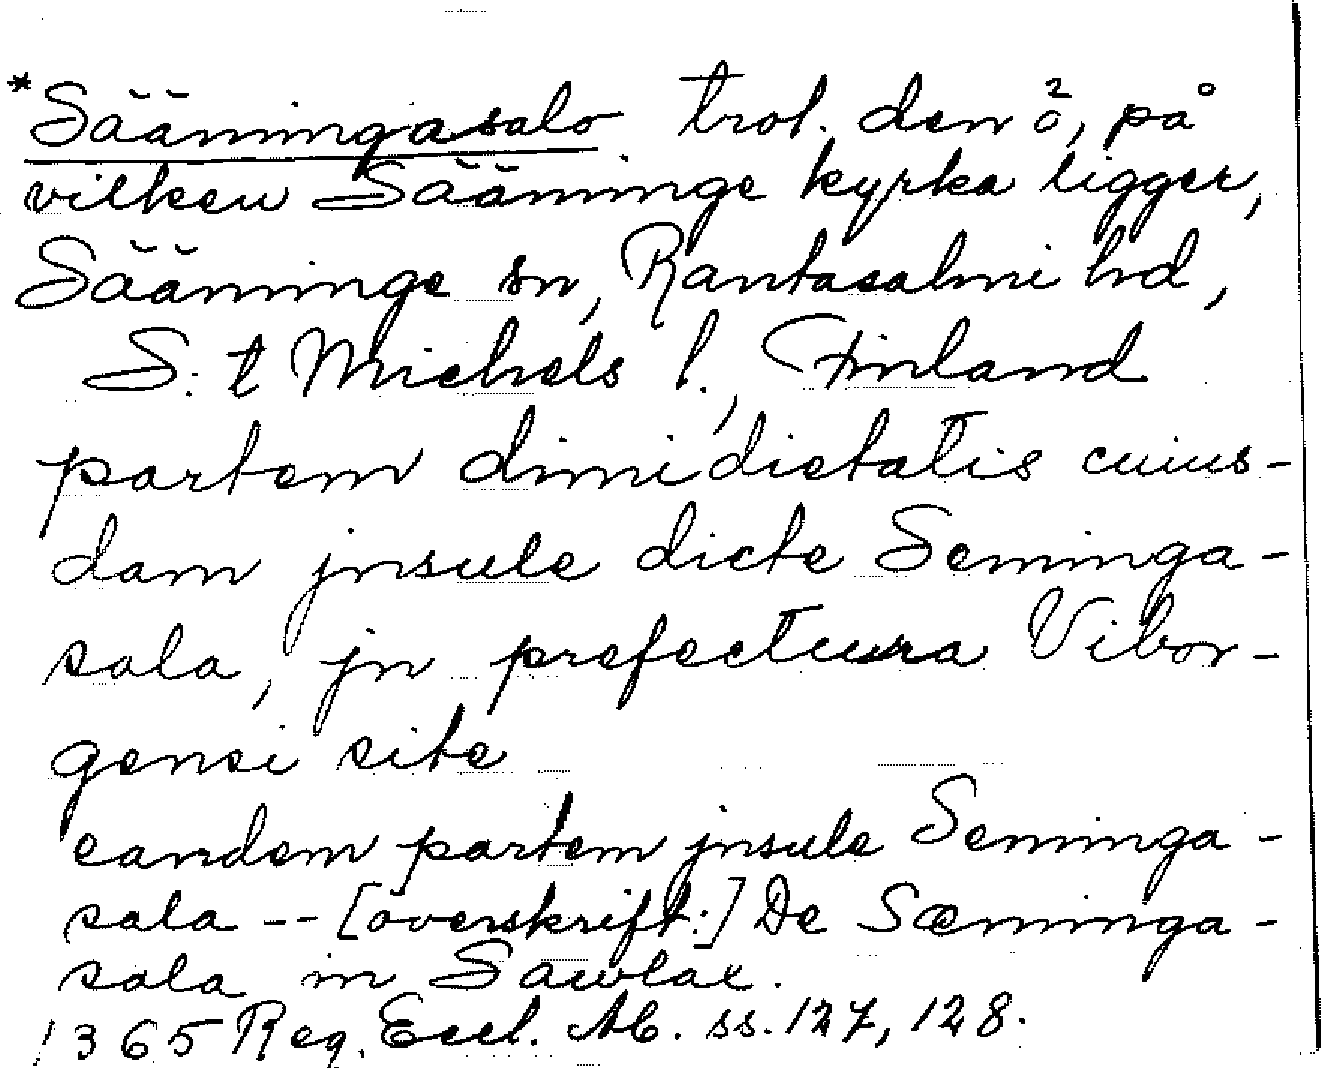 *Sääningasalo trol. den ö, på
vilken Sääminge kyrka ligger,
Sääminge sn, Rantasalmi hd,
S:t Michels l., Finland
partem dimidietatis cuius-
dam jnsule dicte Seminga-
sala, jn prefectura Vibor-
gensi site
eandem partem jnsule Seminga-
sala -- [överskrift:] De Sæminga-
sala in Sawlax.
1365 Reg. Eccl. Ab. ss. 127, 128.